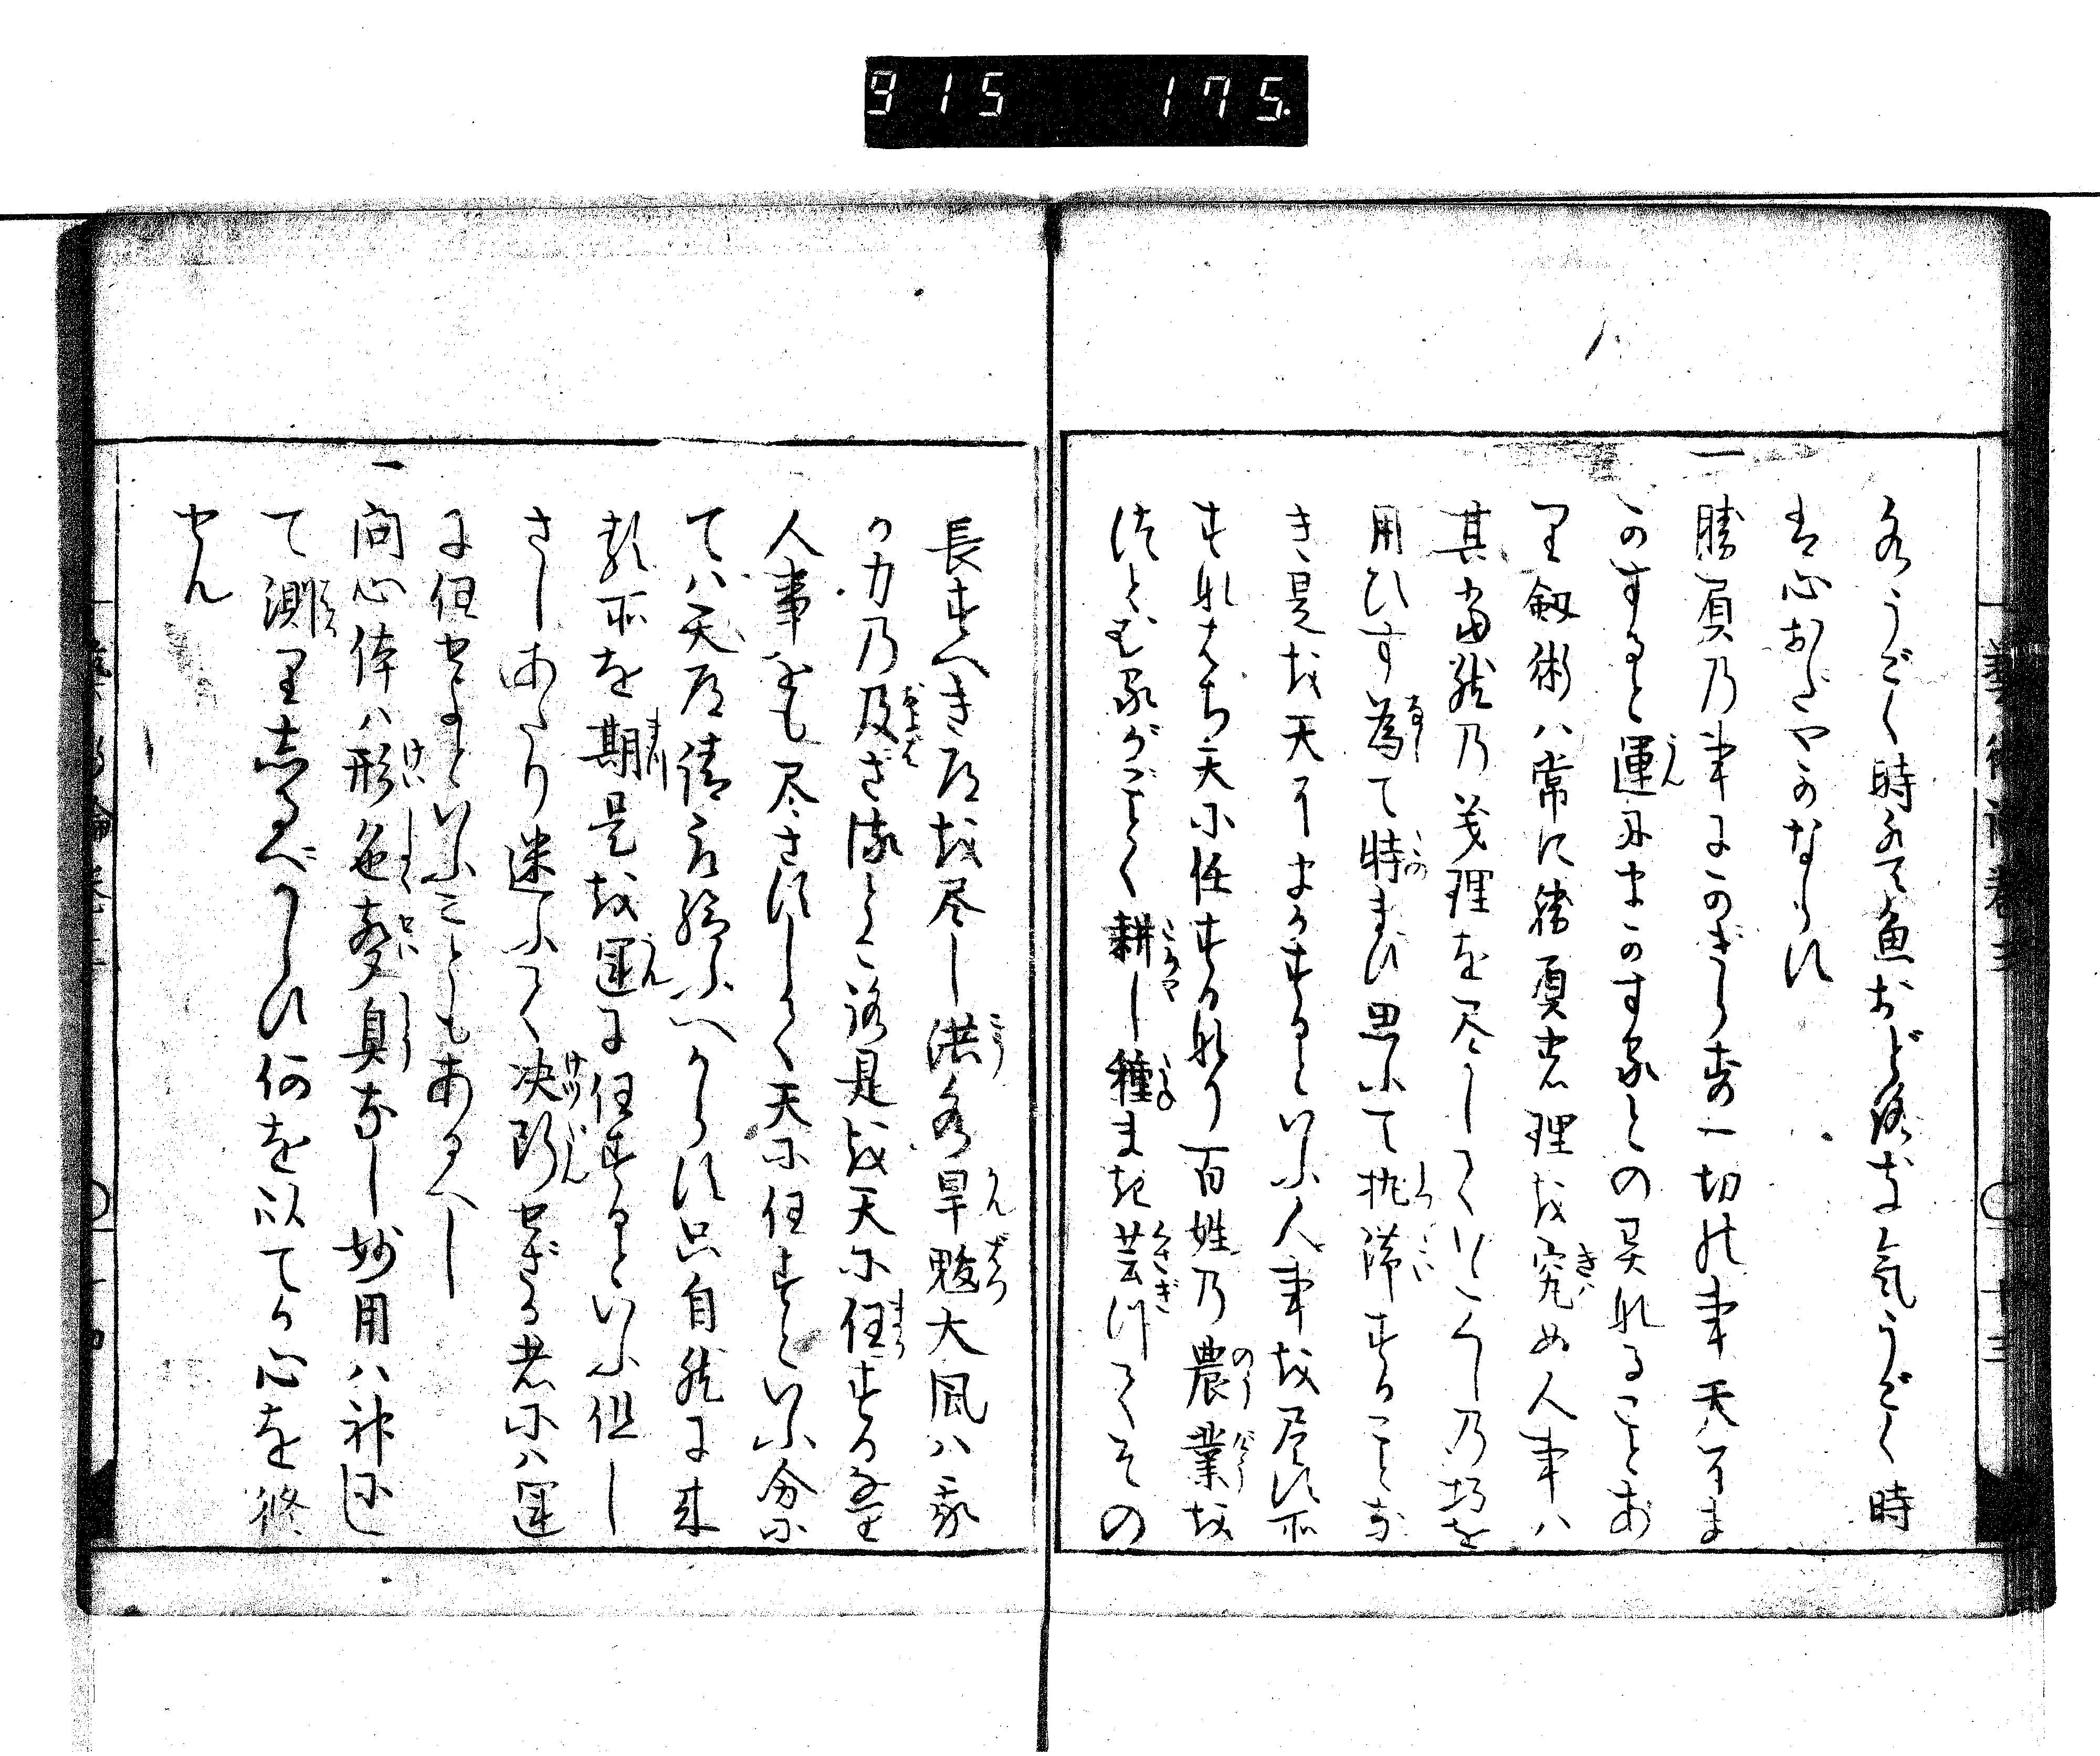 915 175
水うごく時ハ魚おどろく气うごく時
は心おだやかならず
一 勝負の事にかぎらず一切の事天にま
かすると運にまかするとの異なることあ
り剣術ハ常に勝負の理を究め人事ハ
其当然の義理を尽して
用ひず為て恃まず思ふて執滞することな
き是を天にまかするといふ人事を尽す所
すなはち天に任するなり百姓の農業を
つとむるがごとく耕し種まき芸りてその
長すべき道を尽し洪水旱魃大風ハ我
力の及ざるところ是を天に任するなり
人事をも尽さずして天に任すといふ分に
てハ天道請合給ふべからず只自然に来
る所を期是を運に任するといふ但し
さしあたり迷ふて決断せざる者にハ運
に任せよといふこともあるべし
一 問心体ハ形色声臭なし妙用ハ神にし
て測るべからず何を以てか心を修
せん